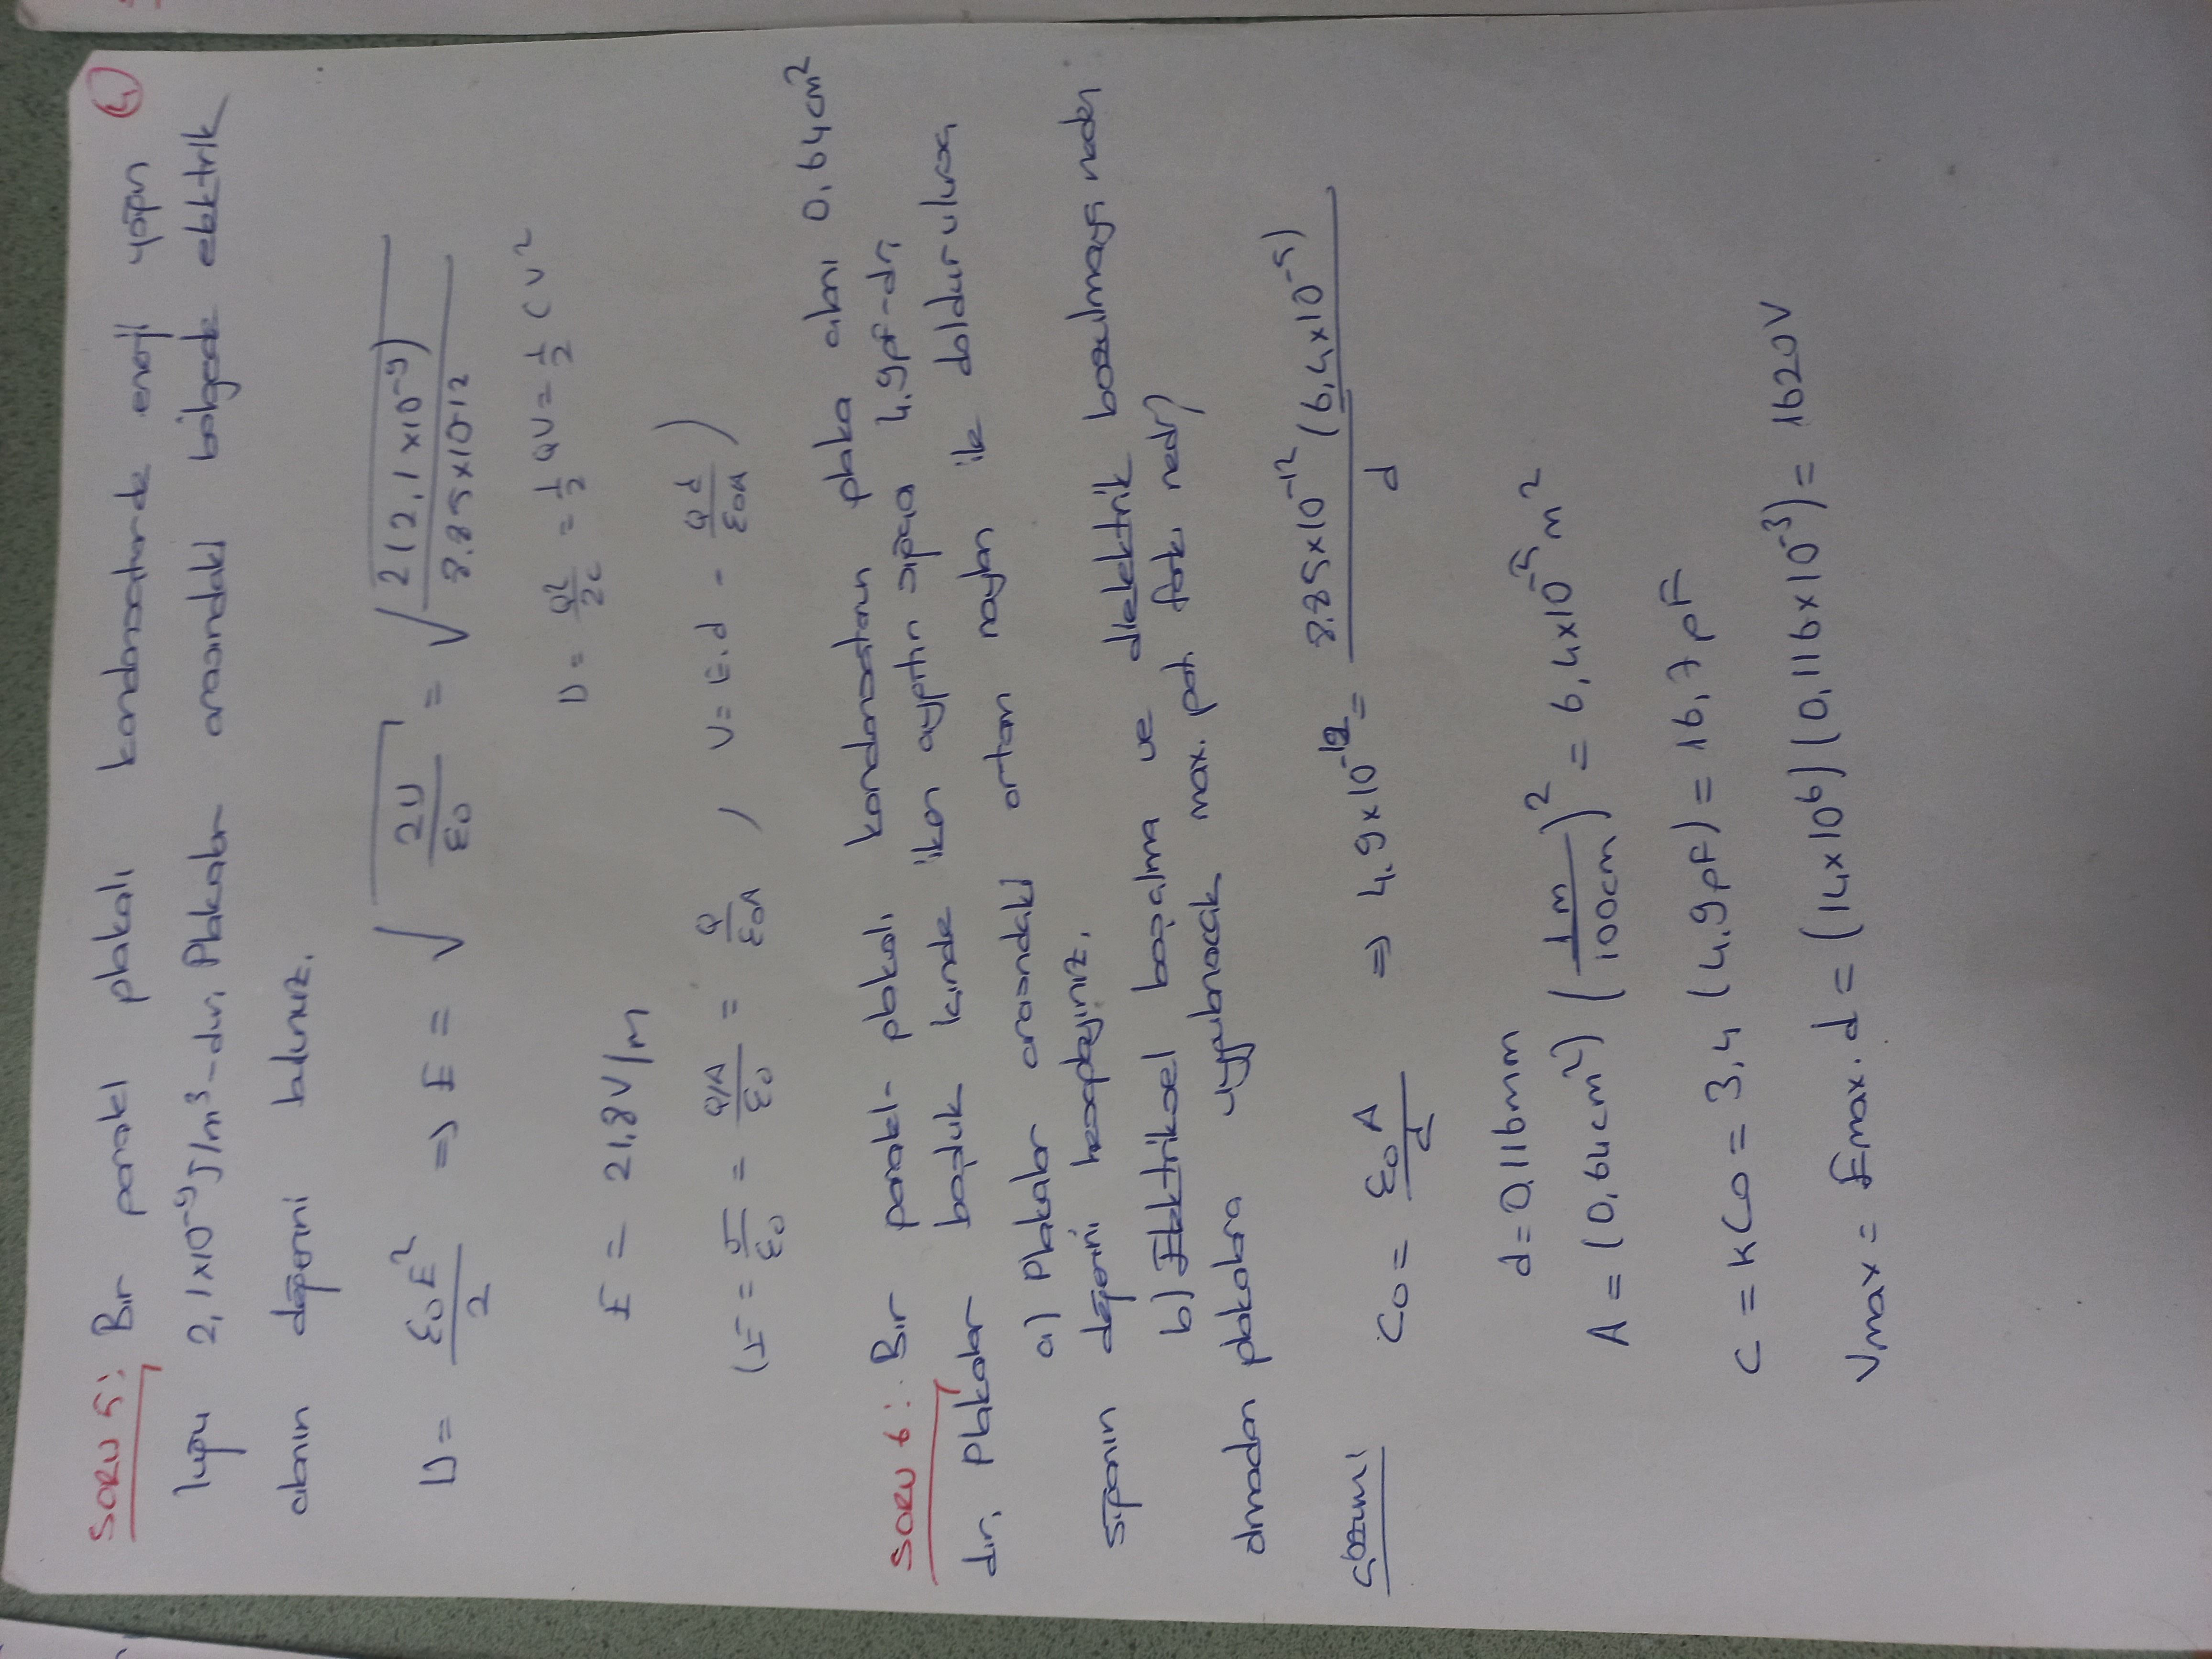 SORU 5: Bir paralel plakalı kondansatörde enerji yoğun ④
luğu 2,1x10⁻⁹ J/m³-dur. Plakalar arasındaki bölgede elektrik
alanın değerini bulunuz.
U = ε₀E²/2 => E = √(2U/ε₀) = √(2(2,1x10⁻⁹)/8.85x10-12)
U = Q²/2C = 1/2 QV = 1/2 CV²
E = 21.8V/m
(E = σ/ε₀ = Q/A/ε₀ = Q/ε₀A , V = E.d - Qd/ε₀A)
SORU 6: Bir paralel-plakalı kondansatörün plaka alanı 0,64cm²
dır. Plakalar boşluk içinde iken aygıtın sığası 4.9pF-dır.
a) Plakalar arasındaki ortam naylon ile doldurulursa
sığanın değerini hesaplayınız.
b) Elektriksel boşalma ve dielektrik bozulmaya neden
olmadan plakalara uygulanacak max. pot. farkı nedir?
Çözüm: C₀ = ε₀A/d => 4.9x10⁻¹² = 8.85x10⁻¹² (6,4x10⁻⁵)/d
d = 0.116mm
A = (0,64cm²) (1m/100cm)² = 6,4x10⁻⁵m²
C = kC₀ = 3,4 (4.9pF) = 16,7pF
Vmax = Emax.d = (14x10⁶) (0,116x10⁻³) = 1620V